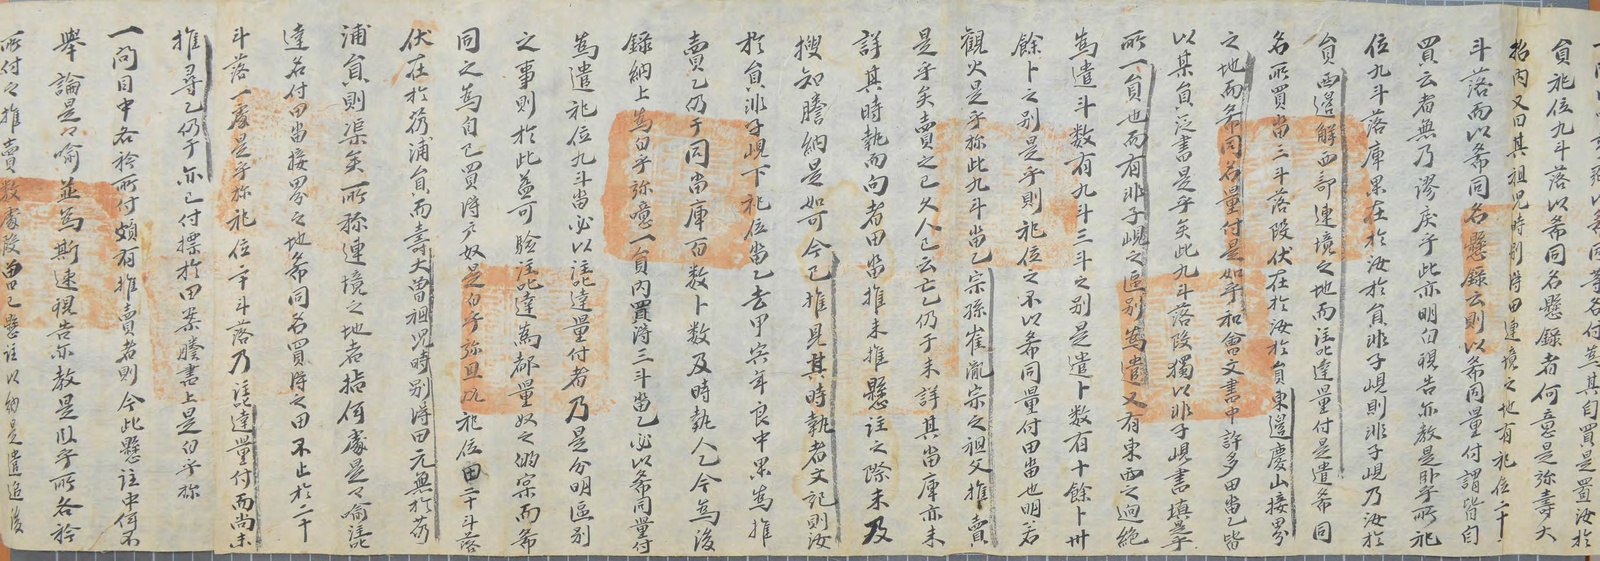 員祀位九斗落以希同名懸錄者何意是旀壽大
抬內又曰其祖児時別得田連境之地有祀位二十
斗落而以希同名懸錄云則以希同量付謂皆自
買云者無乃謬戾乎此亦明白現告亦敎是臥乎所祀
位九斗落庫果在於汝於員非子峴則非子峴乃汝於
員西邉解血哥連境之地而注叱達量付是遣希同
名所買畓三斗落段伏在於汝於員東邉慶山接界
之地而希同名量付是如乎和會文書中許多田畓乙皆
以某員泛書是乎矣此九斗落段獨以非子峴書塡是乎
所一員也而有非子峴之區別爲遣又有東西之逈絶
爲遣斗數有九斗三斗之別是遣卜數有十餘卜卅
餘卜之別是乎則祀位之不以希同量付田畓也明若
觀火是乎旀此九斗畓乙宗孫崔瀧宗之祖父推賣
是乎矣賣之已久人已云亡乙仍于未詳其畓庫亦未
詳其時執而向者田畓推未推懸注之際未及
搜知謄納是如可今已推見其時執者文記則汝
於員非子峴下祀位畓乙去甲寅年良中果爲推
賣乙仍于同畓庫百數卜數及時執人乙今爲後
錄納上爲白乎旀噫一員內置得三斗畓乙必以希同量付
爲遣祀位九斗畓必以注叱達量付者乃是分明區別
之事則於此益可驗注叱達爲都量奴之的実而希
同之爲自己買得戶奴是白乎旀且況祀位田二十斗落
伏在於蒭浦員而壽大曾祖児時別得田元無於蒭
浦員則渠矣所称連境之地者指何處是乎喩注叱
達名付田畓接界之地希同名買得之田不止於二十
斗落一處是乎旀祀位二十斗落乃注叱達量付而尙未
推尋乙仍于亦已付摽於田案謄書上是白乎旀
一問目中各衿所付頗有推賣者則今此懸注中何不
擧論是乎喩並爲斯速現告亦敎是臥乎所各衿
所付之推賣數處段曾已懸注以納是遣追後